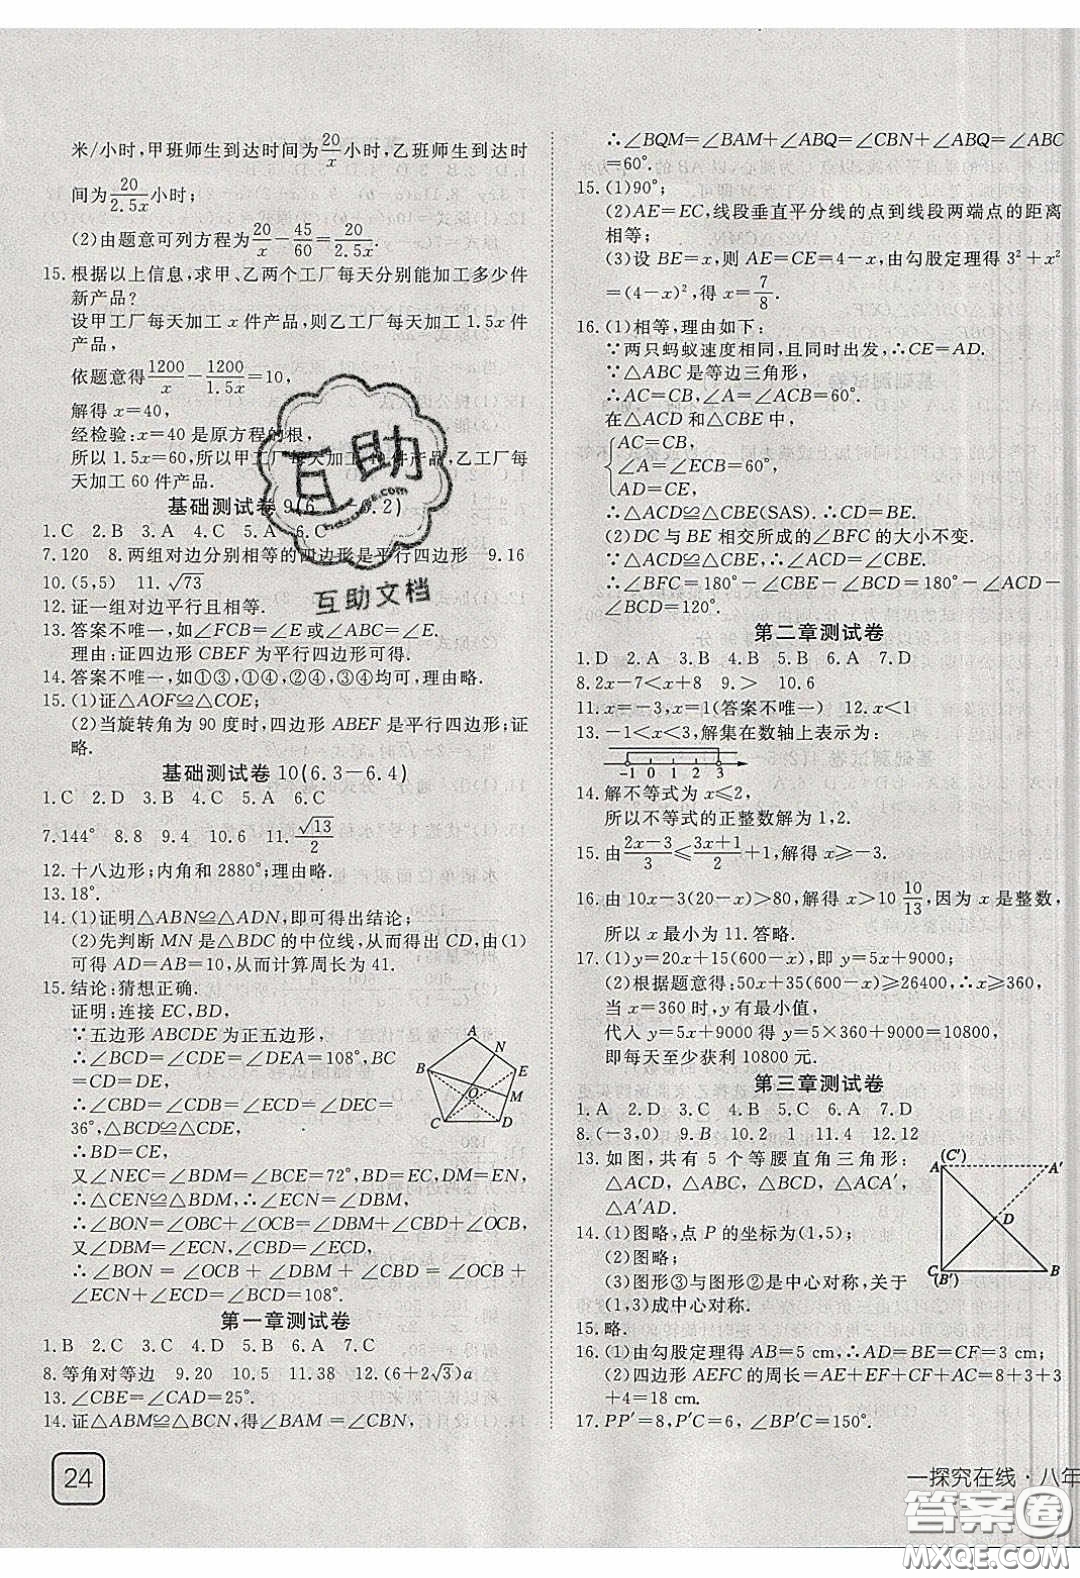 米/小时,甲班师生到达时间为20/x小时,乙班师生到达时
间为20/2.5x小时;
(2)由题意可列方程为20/x−45/60=20/2.5x.
15.根据以上信息,求甲、乙两个工厂每天分别能加工多少件
新产品?
设甲工厂每天加工x件产品,则乙工厂每天加工1.5x件
产品,
依题意得1200/x−1200/1.5x=10,
解得x=40,
经检验:x=40是原方程的根,
所以1.5x=60,所以甲工厂每天加工40件产品,乙工厂每
天加工60件产品.
基础测试卷9(6.1−6.2)
1.C 2.B 3.A 4.C 5.A 6.C
7.120 8.两组对边分别相等的四边形是平行四边形 9.16
10.(5,5) 11.√73
12.证一组对边平行且相等.
13.答案不唯一,如∠FCB=∠E或∠ABC=∠E.
理由:证四边形CBEF为平行四边形可得.
14.答案不唯一,如①③,①④,②④,③④均可,理由略.
15.(1)证△AOF≌△COE;
(2)当旋转角为90度时,四边形ABEF是平行四边形;证
略.
基础测试卷10(6.3−6.4)
1.C 2.D 3.B 4.C 5.A 6.C
7.144° 8.8 9.4 10.6 11.√13/2
12.十八边形;内角和2880°;理由略.
13.18°.
14.(1)证明△ABN≌△ADN,即可得出结论;
(2)先判断MN是△BDC的中位线,从而得出CD,由(1)
可得AD=AB=10,从而计算周长为41.
15.结论:猜想正确.
证明:连接EC,BD,
∵五边形ABCDE为正五边形,
∴∠BCD=∠CDE=∠DEA=108°,BC
=CD=DE,
∴∠CBD=∠CDB=∠ECD=∠DEC=
36°,△BCD≌△CDE,
∴BD=CE,
又∠NEC=∠BDM=∠BCE=72°,BD=EC,DM=EN,
∴△CEN≌△BDM,∴∠ECN=∠DBM,
∴∠BON=∠OBC+∠OCB=∠DBM+∠CBD+∠OCB,
又∠DBM=∠ECN,∠CBD=∠ECD,
∴∠BON=∠OCB+∠DBM+∠CBD=∠OCB+
∠ECN+∠ECD=∠BCD=108°.
A
B
N
E
O
M
C
D
第一章测试卷
1.B 2.C 3.D 4.A 5.A 6.B 7.C
8.等角对等边 9.20 10.5 11.38 12.(6+2√3)a
13.∠CBE=∠CAD=25°.
14.证△ABM≌△BCN,得∠BAM=∠CBN,
24
∴∠BQM=∠BAM+∠ABQ=∠CBN+∠ABQ=∠ABC
=60°.
15.(1)90°;
(2)AE=EC,线段垂直平分线的点到线段两端点的距离
相等;
(3)设BE=x,则AE=CE=4−x,由勾股定理得3²+x²
=(4−x)²,得x=7/8.
16.(1)相等,理由如下:
∵两只蚂蚁速度相同,且同时出发,∴CE=AD.
∵△ABC是等边三角形,
∴AC=CB,∠A=∠ACB=60°,
在△ACD和△CBE中,
AC=CB,
∠A=∠ECB=60°,
AD=CE,
∴△ACD≌△CBE(SAS). ∴CD=BE.
(2)DC与BE相交所成的∠BFC的大小不变.
∵△ACD≌△CBE,∴∠ACD=∠CBE.
∴∠BFC=180°−∠CBE−∠BCD=180°−∠ACD−
∠BCD=120°.
第二章测试卷
1.D 2.A 3.B 4.B 5.B 6.A 7.D
8.2x−7<x+8 9.> 10.6
11.x=−3,x=1(答案不唯一) 12.x<1
13.−1<x<3,解集在数轴上表示为:
−1 0 1 2 3
14.解不等式为x≤2,
所以不等式的正整数解为1,2.
15.由2x−3/3≤3x+1/2+1,解得x≥−3.
16.由10x−3(20−x)>80,解得x>10 10/13,因为x是整数,
所以x最小为11.答略.
17.(1)y=20x+15(600−x),即y=5x+9000;
(2)根据题意得:50x+35(600−x)≥26400,∴x≥360,
当x=360时,y有最小值,
代入y=5x+9000得y=5×360+9000=10800,
即每天至少获利10800元.
第三章测试卷
1.A 2.D 3.C 4.B 5.C 6.A 7.D
8.(−3,0) 9.B 10.2 1 11.4 12.12
13.如图,共有5个等腰直角三角形:
△ACD,△ABC,△BCD,△ACA′,
△A′AD.
14.(1)图略,点P的坐标为(1,5);
(2)图略;
(3)图形③与图形②是中心对称,关于
(1,3)成中心对称.
(C′)
A
A′
D
C
(B′)
B
15.略.
16.(1)由勾股定理得AB=5 cm,∴AE=AB=5 cm;
(2)四边形AEFC的周长=AE+EF+CF+AC=5+3+3
+3+4=18 cm.
17.PP′=8,P′C=6,∠BP′C=150°.
一探究在线·八年
互助
互助文档
答案圈
MXQE.COM